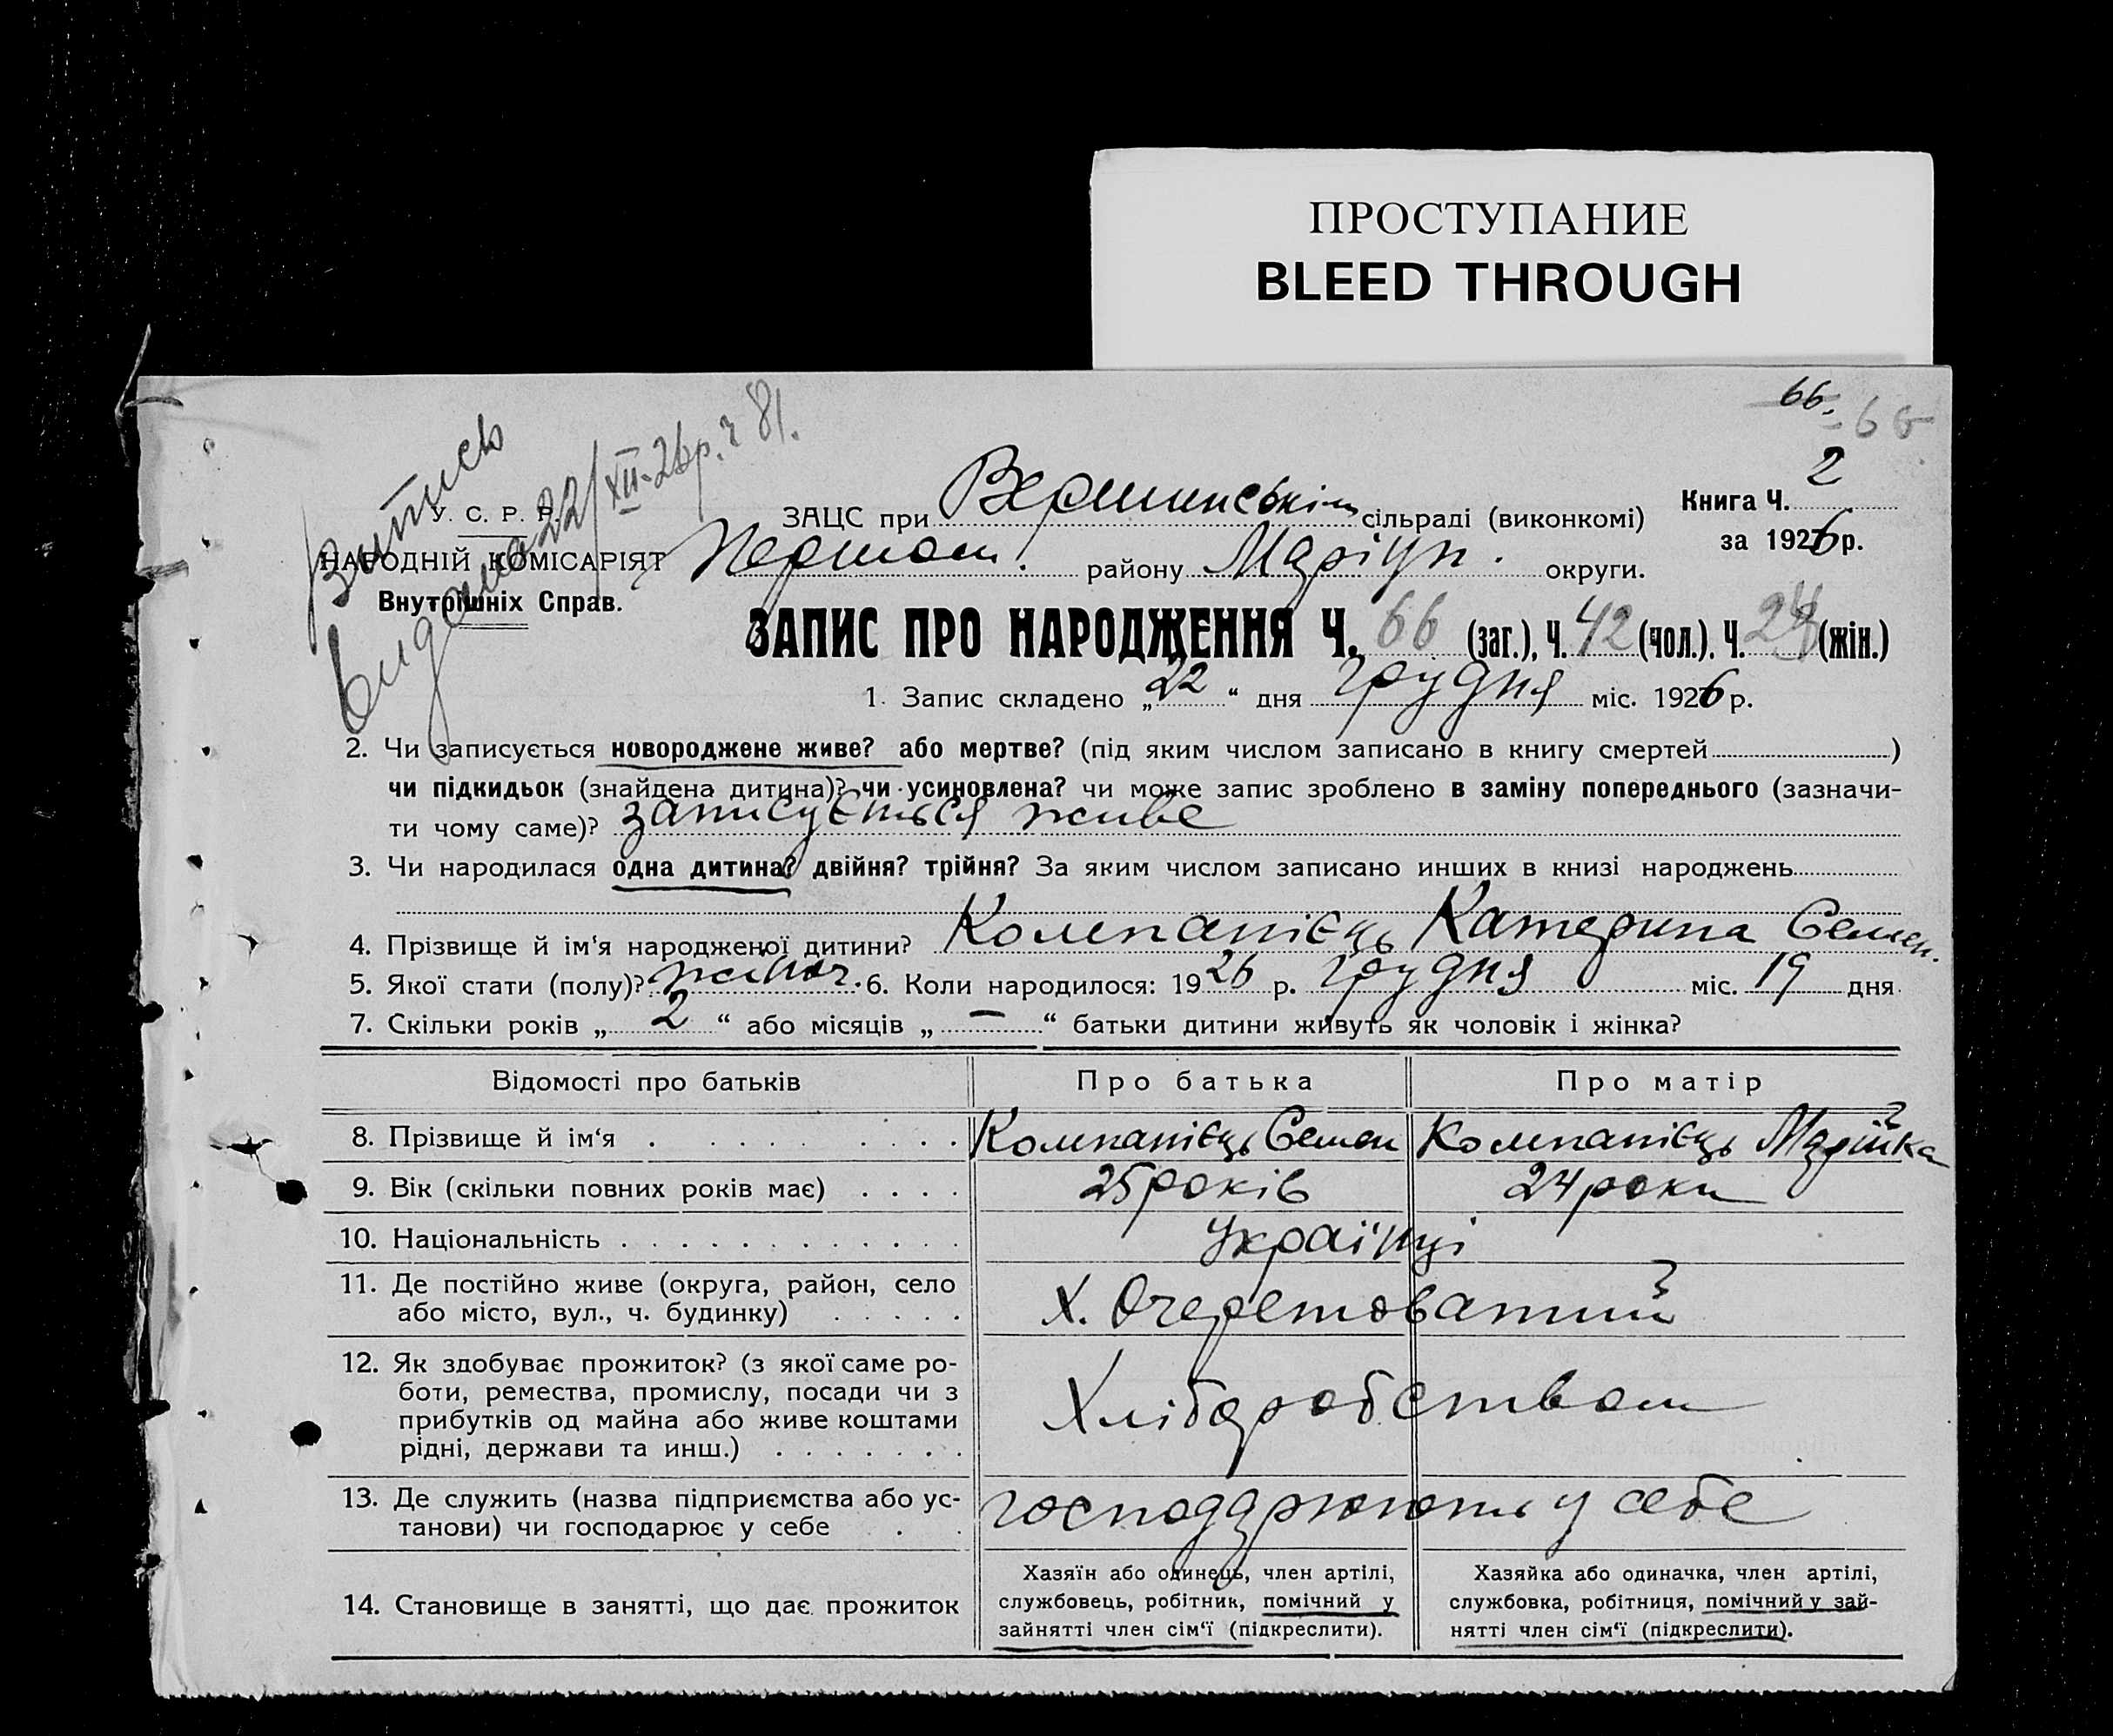 ПРОСТУПАНИЕ
BLEED THROUGH
66. 66
Витись
видана 22/XII-26р. ч 81.
У. С. Р. Р.
НАРОДНІЙ КОМІСАРІЯТ
Внутрішніх Справ.
Книга Ч. 2
за 1926 р.
ЗАЦС при Вершинськім сільраді (виконкомі)
району Маріуп. округи.
ЗАПИС ПРО НАРОДЖЕННЯ Ч. 66 (заг.), Ч. 42 (чол.), Ч. 24 (жін.)
1. Запис складено „ 22 “ дня грудня міс. 1926 р.
2. Чи записується новороджене живе? або мертве? (під яким числом записано в книгу смертей )
чи підкидьок (знайдена дитина)? чи усиновлена? чи може запис зроблено в заміну попереднього (зазначи-
ти чому саме)? записується живе
3. Чи народилася одна дитина? двійня? трійня? За яким числом записано инших в книзі народжень
4. Прізвище й ім‘я народженої дитини? Компанієць Катерина Семен.
5. Якої стати (полу)? жіноч. 6. Коли народилося: 1926 р. грудня міс. 19 дня
7. Скільки років „ 2 “ або місяців „ — “ батьки дитини живуть як чоловік і жінка?
Відомості про батьків Про батька Про матір
8. Прізвище й ім‘я . . . . . . . . . Компанієць Семен Компанієць Марійка
9. Вік (скільки повних років має) . . . . 25 років 24 роки
10. Національність . . . . . . . . . . . . Українці
11. Де постійно живе (округа, район, село
або місто, вул., ч. будинку) . . . . . Х. Очеретоватий
12. Як здобуває прожиток? (з якої саме ро-
боти, ремества, промислу, посади чи з
прибутків од майна або живе коштами
рідні, держави та инш.) . . . . . . . Хліборобством
13. Де служить (назва підприємства або ус-
танови) чи господарює у себе . . господарюють у себе
14. Становище в занятті, що дає прожиток
Хазяїн або одинець, член артілі,
службовець, робітник, помічний у
зайнятті член сім‘ї (підкреслити).
Хазяйка або одиначка, член артілі,
службовка, робітниця, помічний у зай-
нятті член сім‘ї (підкреслити).